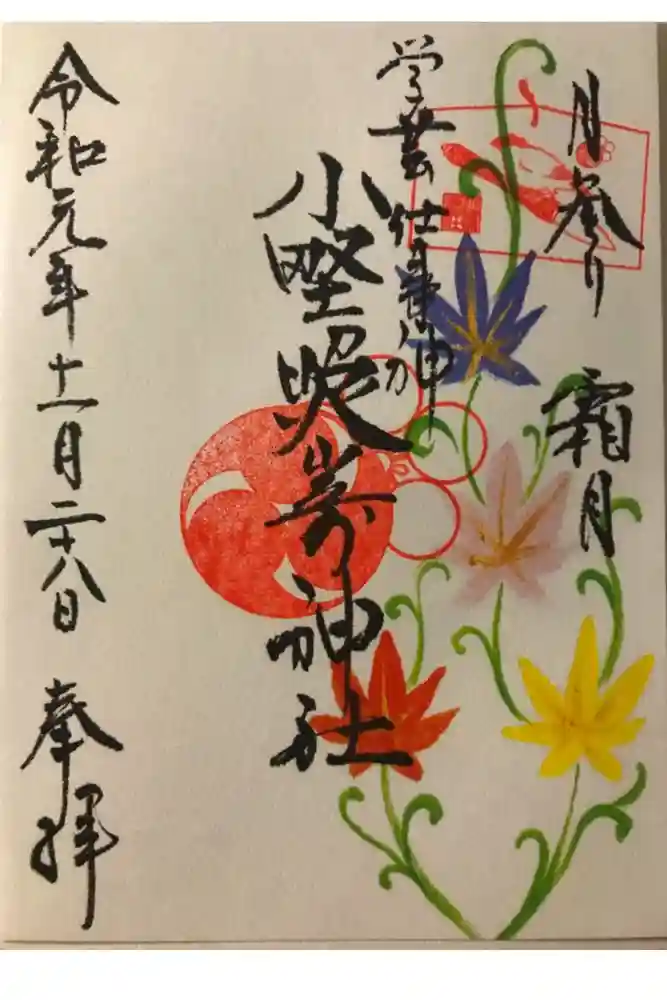 月参り 霜月
学芸仕事の神
小野照崎神社
令和元年十一月二十八日 奉拝